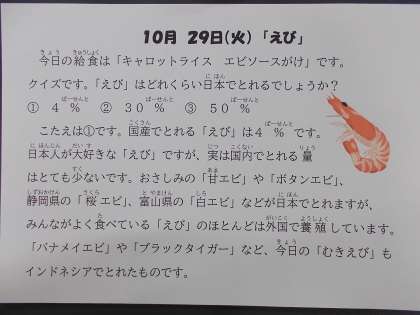 10月 29日(火)「えび」
今日の給食は「キャロットライス エビソースがけ」です。
クイズです。「えび」はどれくらい日本でとれるでしょうか？
① 4％ ② 30％ ③ 50％
こたえは①です。国産でとれる「えび」は4％です。
日本人が大好きな「えび」ですが、実は国内でとれる量
はとても少ないです。おさしみの「甘エビ」や「ボタンエビ」、
静岡県の「桜エビ」、富山県の「白エビ」などが日本でとれますが、
みんながよく食べている「えび」のほとんどは外国で養殖しています。
「バナメイエビ」や「ブラックタイガー」など、今日の「むきえび」も
インドネシアでとれたものです。